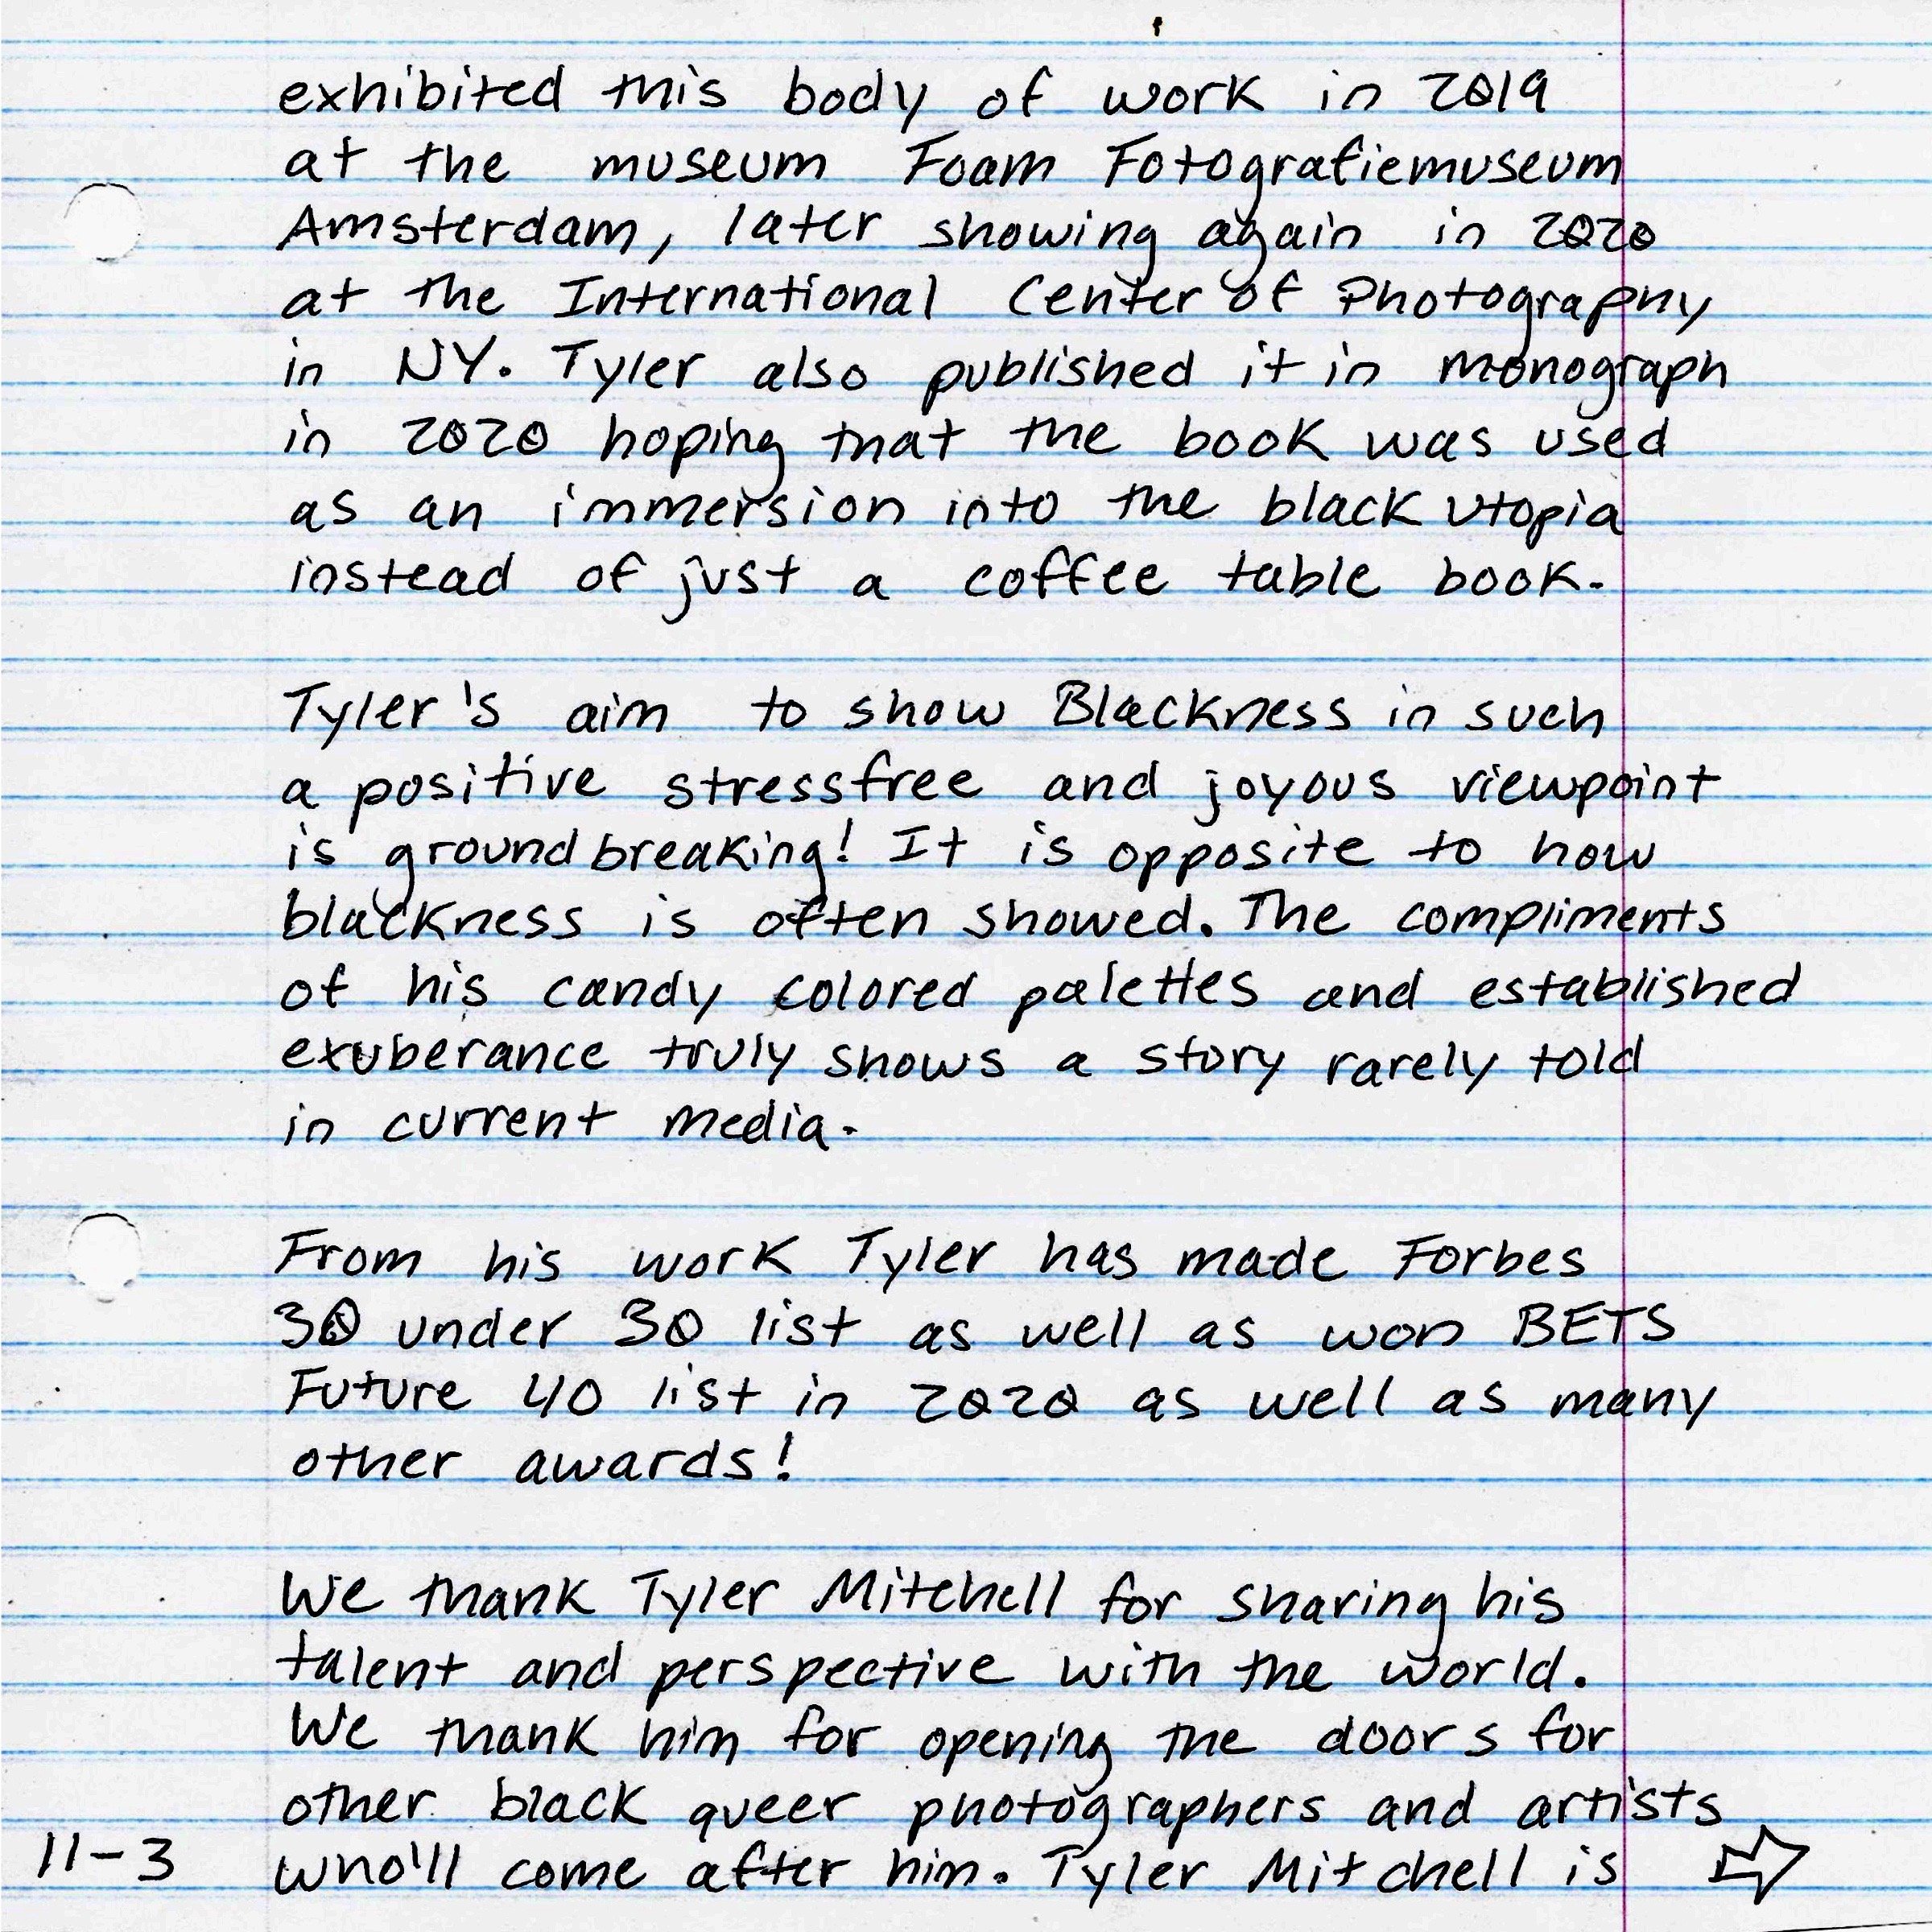 exhibited this body of work in 2019
at the museum Foam Fotografiemuseum
Amsterdam, later showing again in 2020
at the International Center of Photography
in NY. Tyler also published it in monograph
in 2020 hoping that the book was used
as an immersion into the black utopia
instead of just a coffee table book.
Tyler's aim to show Blackness in such
a positive stressfree and joyous viewpoint
is groundbreaking! It is opposite to how
blackness is often showed. The compliments
of his candy colored palettes and established
exuberance truly shows a story rarely told
in current media.
From his work Tyler has made Forbes
30 under 30 list as well as won BETS
Future 40 list in 2020 as well as many
other awards!
We thank Tyler Mitchell for sharing his
talent and perspective with the world.
We thank him for opening the doors for
other black queer photographers and artists
who'll come after him. Tyler Mitchell is
11-3